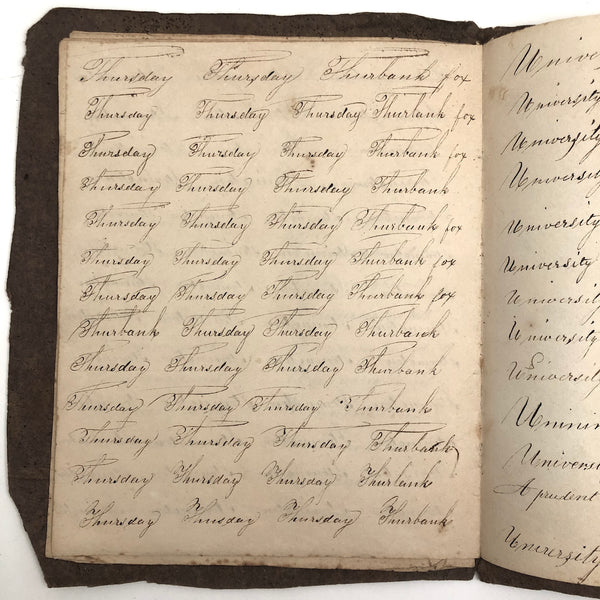 Thursday Thursday Thurbank fox
Thursday Thursday Thursday Thurbank fox
Thursday Thursday Thursday Thurbank fox
Thursday Thursday Thursday Thurbank
Thursday Thursday Thursday Thurbank fox
Thursday Thursday Thursday Thurbank fox
Thursday Thursday Thursday Thurbank fox
Thurbank Thursday Thursday Thurbank
Thursday Thursday Thursday Thurbank
Thursday Thursday Thursday Thurbank
Thursday Thursday Thursday Thurbank
Thursday Thursday Thursday Thurbank
Thursday Thursday Thursday Thurbank
Unive
University
University
University
University
University
University
University
University
Uninin
Universi
A prudent
University